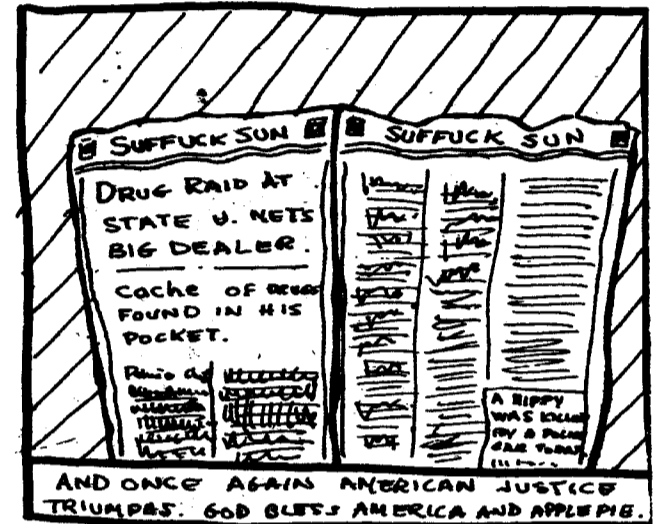 SUFFUCK SUN
DRUG RAID AT
STATE U. NETS
BIG DEALER.
CACHE OF DRUGS
FOUND IN HIS
POCKET.
SUFFUCK SUN
A HIPPY
WAS KILLED
BY A POLICE
CAR TODAY
AND ONCE AGAIN AMERICAN JUSTICE
TRIUMPHS. GOD BLESS AMERICA AND APPLE PIE.